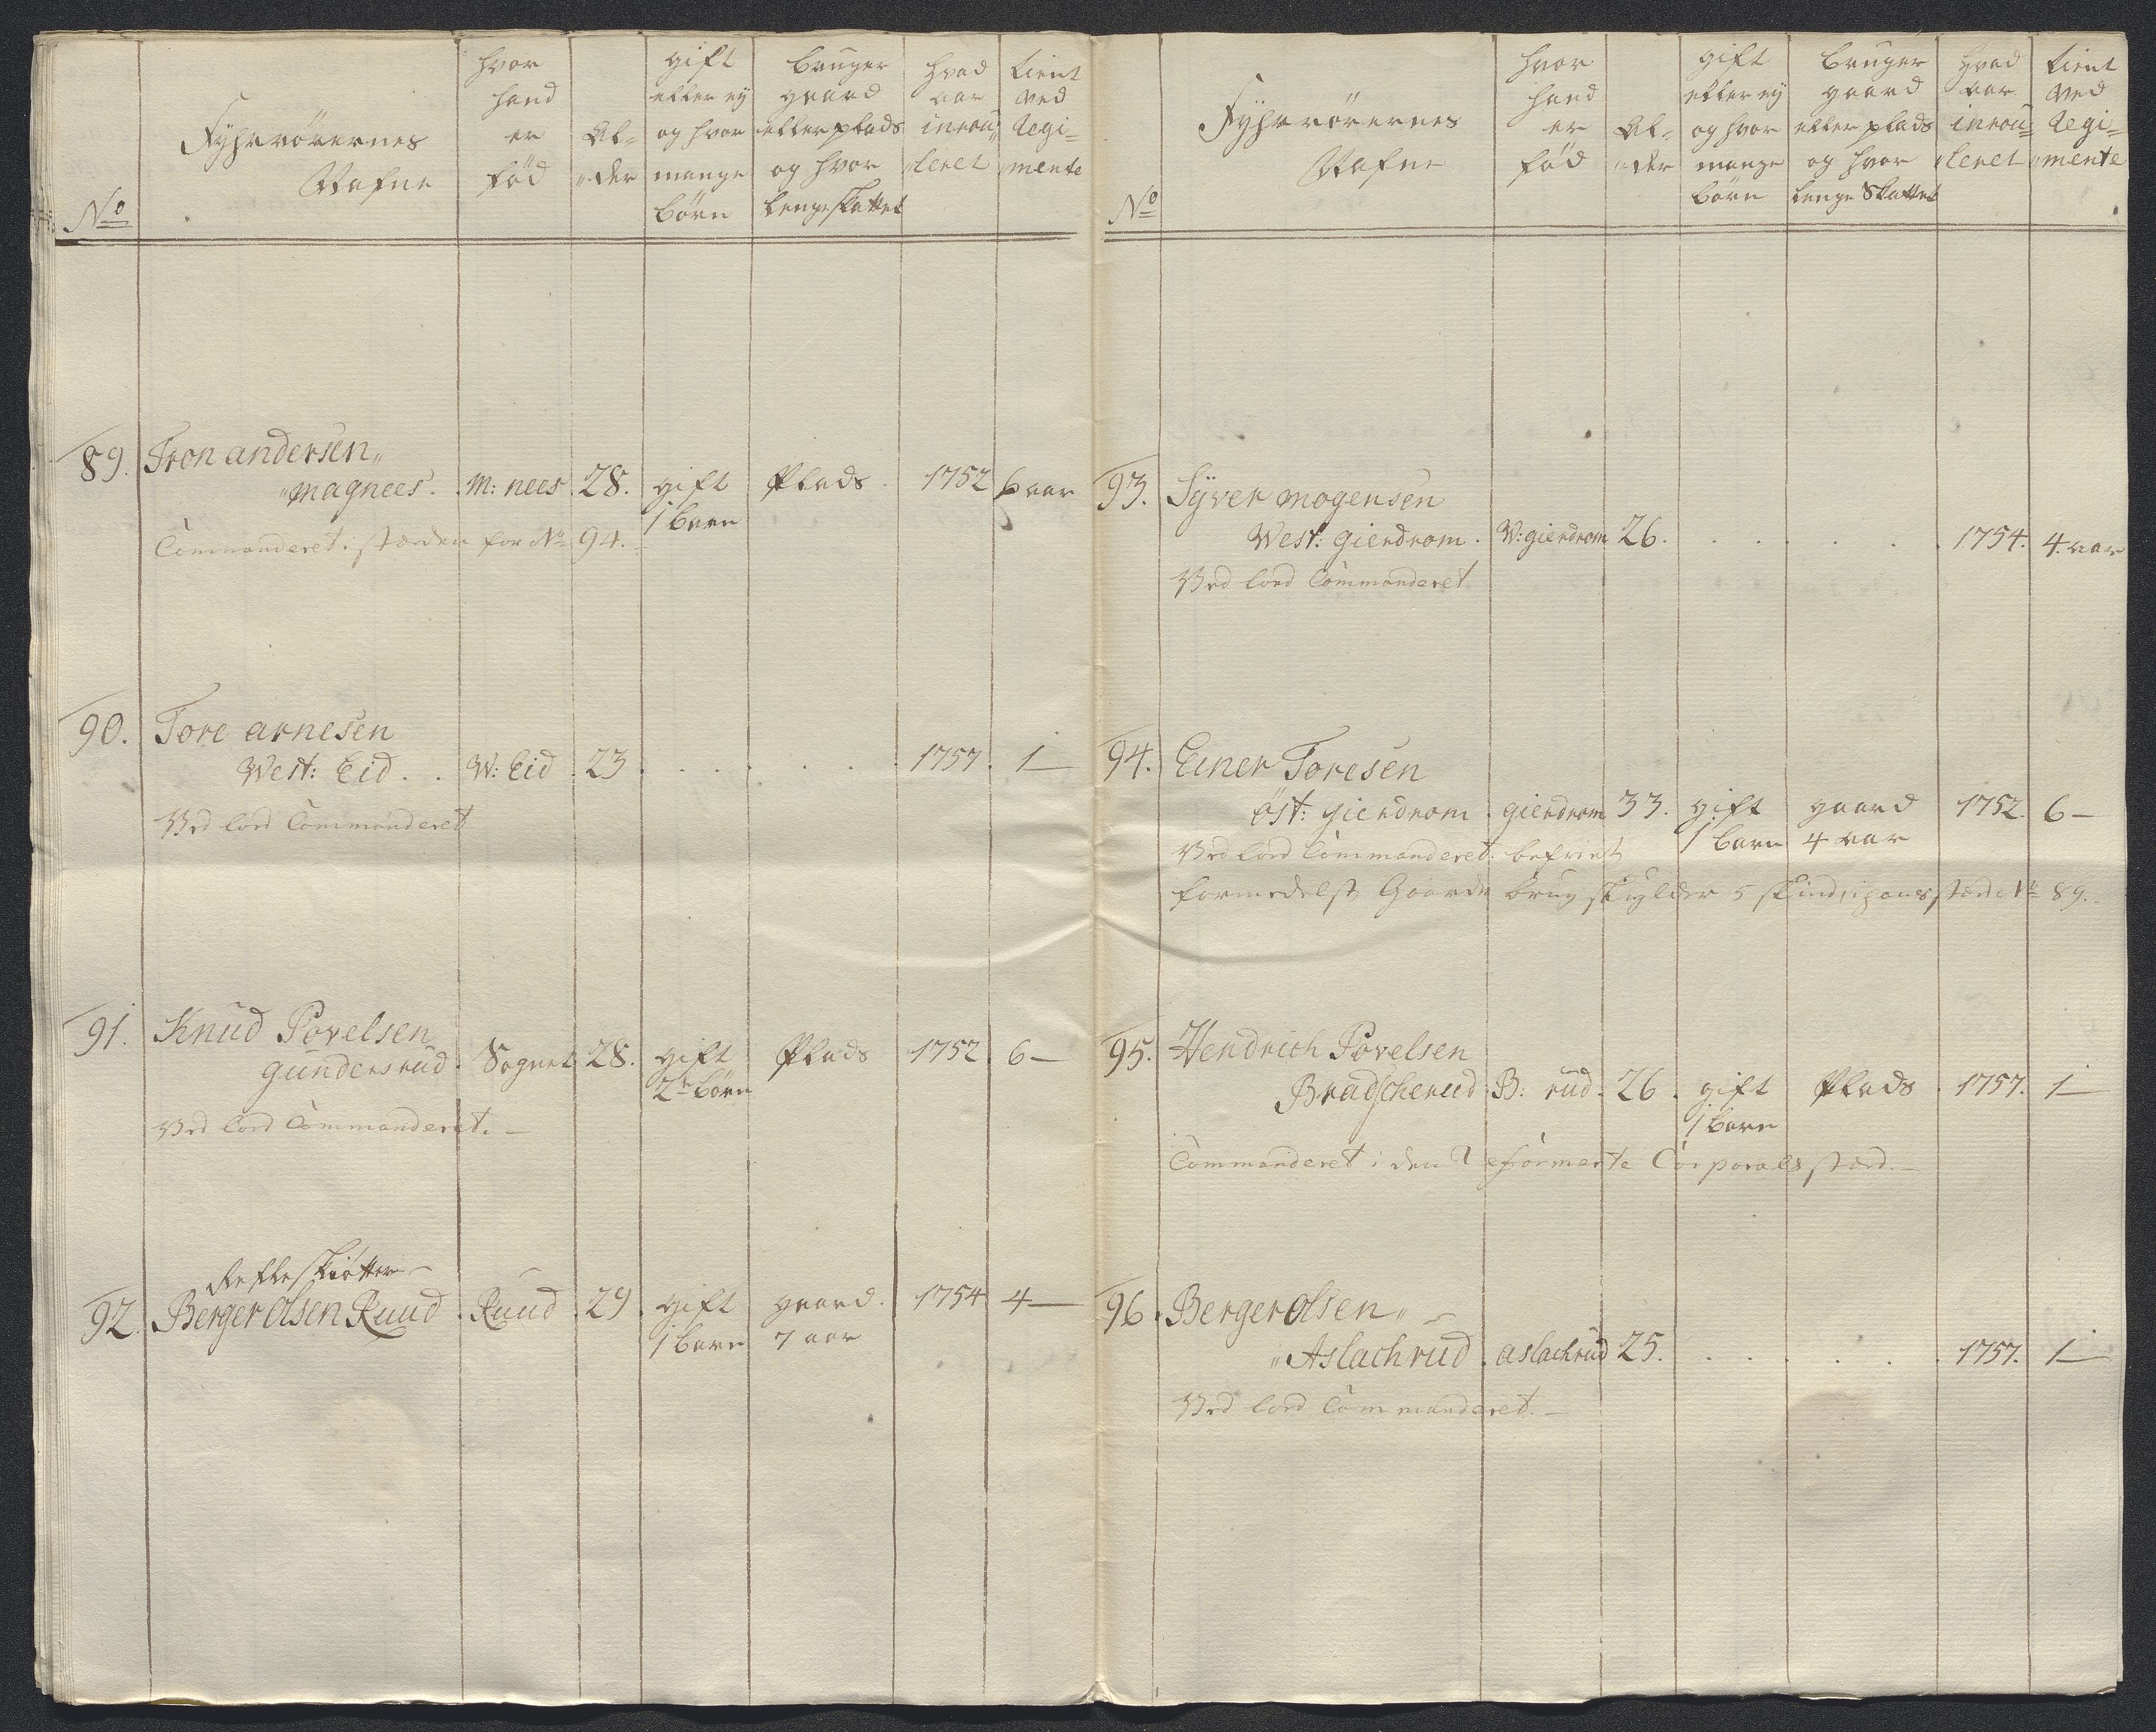 No
Fyhrrörernes
Nafne
hvor
hand
er
fød
Al-
der
gift
eller ey
og hvor
mange
børn
bruger
gaard
eller plads
og hvor
lenge skattet
hvad
aar
inrou-
leret
tient
ved
Regi-
mente
89. Tron andersen
magnees. M: nees 28. gift Plads 1752 6 aar
1 barn
Commanderet i stæden for No 94.
90. Tore arnesen
West: Eid . . W: Eid 23 . . . . . 1757. 1 —
Ved lord Commanderet
91. Knud Povelsen
gundersrud. Sognet 28. gift Plads 1752 6 —
2de børn
Ved lord Commanderet. —
Refleskiøtter
92. Berger Olsen Ruud. Ruud 29. gift gaard. 1754 4 —
1 barn 7 aar
No
Fyhrrörernes
Nafne
hvor
hand
er
fød
Al-
der
gift
eller ey
og hvor
mange
børn
bruger
gaard
eller plads
og hvor
lenge Skattet
hvad
aar
inrou-
leret
tient
ved
Regi-
mente
93. Syver mogensen
West: gierdrom. W: gierdrom 26. . . . . . 1754. 4. aar
Ved lord Commanderet
94. Einer Toresen
öst: gierdrom. gierdrom 33. gift gaard 1752. 6 —
1 barn 4 aar
Ved lord Commanderet. befriet
formedelst Gaards brug skylder 5 skind, i hans stæd No 89.
95. Hendrich Povelsen
Bradscherud. B: rud. 26. gift Plads. 1757. 1 —
1 barn
Commanderet i den Reformerte Corporals stæd. —
96. Berger olsen
Aslachrud. aslachrud 25. . . . . . 1757. 1 —
Ved lord Commanderet. —